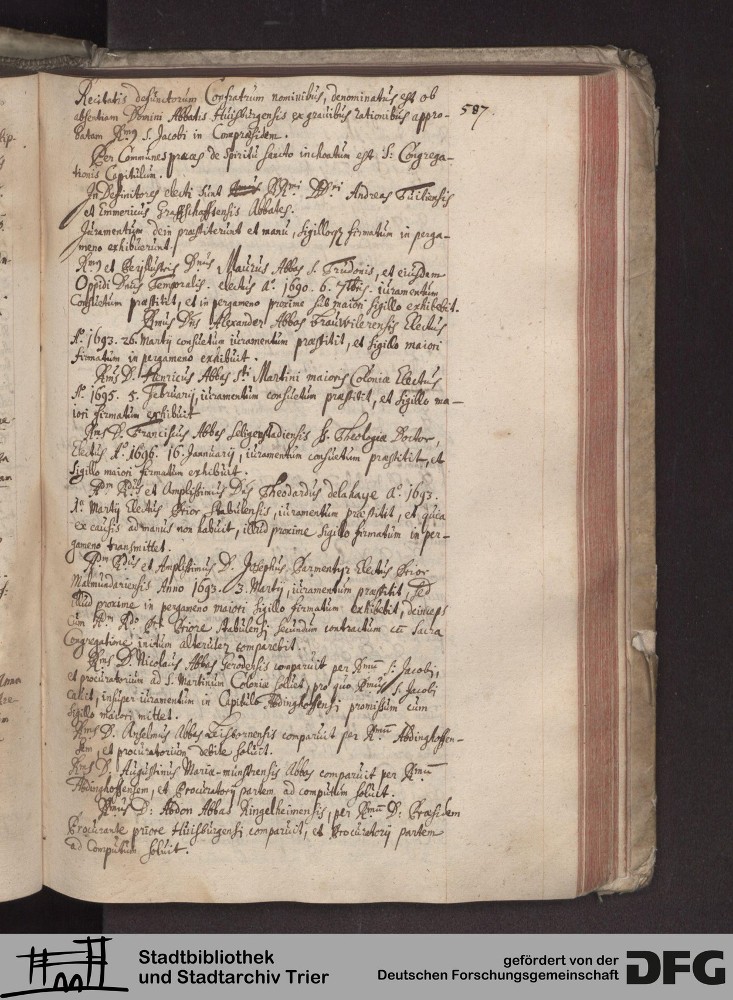 587
Recitatis defunctorum Confratrum nominibus, denominatus est ob
absentiam Domini Abbatis Huisburgensis ex gravibus rationibus appro-
batam Rm9 S. Jacobi in Compraesidem.
Per Communes preces de Spiritu Sancto inchoatum est S: Congrega-
tionis Capitulum.
In Definitores electi sunt RRmi DDni Andreas Tuitiensis
et Emmericus Graffschafftensis Abbates.
Juramentum dein praestiterunt et manu, sigilloq3 firmatum in perga-
meno exhibuerunt.
Rm9 et Perillustris Dnus Maurus Abbas S. Trudonis, et eiusdem
Oppidi Dnus Temporalis. electus Ao. 1690. 6. 7bris. iuramentum
Consuetum praestitit, et in pergameno proxime sub maiori sigillo exhibebit.
Rmus Dns Alexander Abbas Brauwilerensis Electus
Ao. 1693. 26. Martij consuetum iuramentum praestitit, et sigillo maiori
firmatum in pergameno exhibuit.
Rms D. Henricus Abbas Sti Martini maioris Coloniae Electus
Ao. 1695. 5. Februarij, iuramentum consuetum praestitit, et sigillo ma-
iori firmatum exhibuit
Rms D. Franciscus Abbas Seligenstadiensis SS. Theologiae Doctor,
Electus Ao. 1696. 16. Jannuarij, iuramentum consuetum praestitit, et
sigillo maiori firmatum exhibuit.
Adm Rdus et Amplissimus Dns Theodardus delahaye Ao. 1693.
Martij Electus Prior Stabulensis, iuramentum praestitit, et quia
ex causis ad manus non habuit, illud proxime sigillo firmatum in per-
gameno transmittet.
Adm Rdus et Amplissimus D. Josephus Parmentyr Electus Prior
Malmundariensis Anno 1693. 3. Martij, iuramentum praestitit, sed
illud proxime in pergameno maiori sigillo firmatum exhibebit, deinceps
cum Adm Rdo Priore Stabulensi secundum contractum cu Sacra
Congregatione initum alteruter comparebit.
Rms D. Nicolaus Abbas Gerodensis comparuit per Rmu S: Jacobi,
et procuratorium ad S. Martinum Coloniae solvet, pro quo Rmus S. Jacobi
cavit, insuper iuramentum in Capitulo Abdinghoffensi promissum cum
sigillo maiori mittet.
Rms D. Anselmus Abbas Lisbornensis comparuit per Rmu Abdinghoffen-
sem, et procuratorium debite solvit.
Rms D. Augustinus Mariae-munstrensis Abbas comparuit per Rmu
Abdinghoffensem, et Procuratorij partem ad computum solvit.
Rmus D: Abdon Abbas Ringelheimensis, per Rmu D: Praesidem
Procurante priore Huisburgensi comparuit, et Procuratorij partem
ad Computum solvit.
Stadtbibliothek
und Stadtarchiv Trier
gefördert von der
Deutschen Forschungsgemeinschaft
DFG